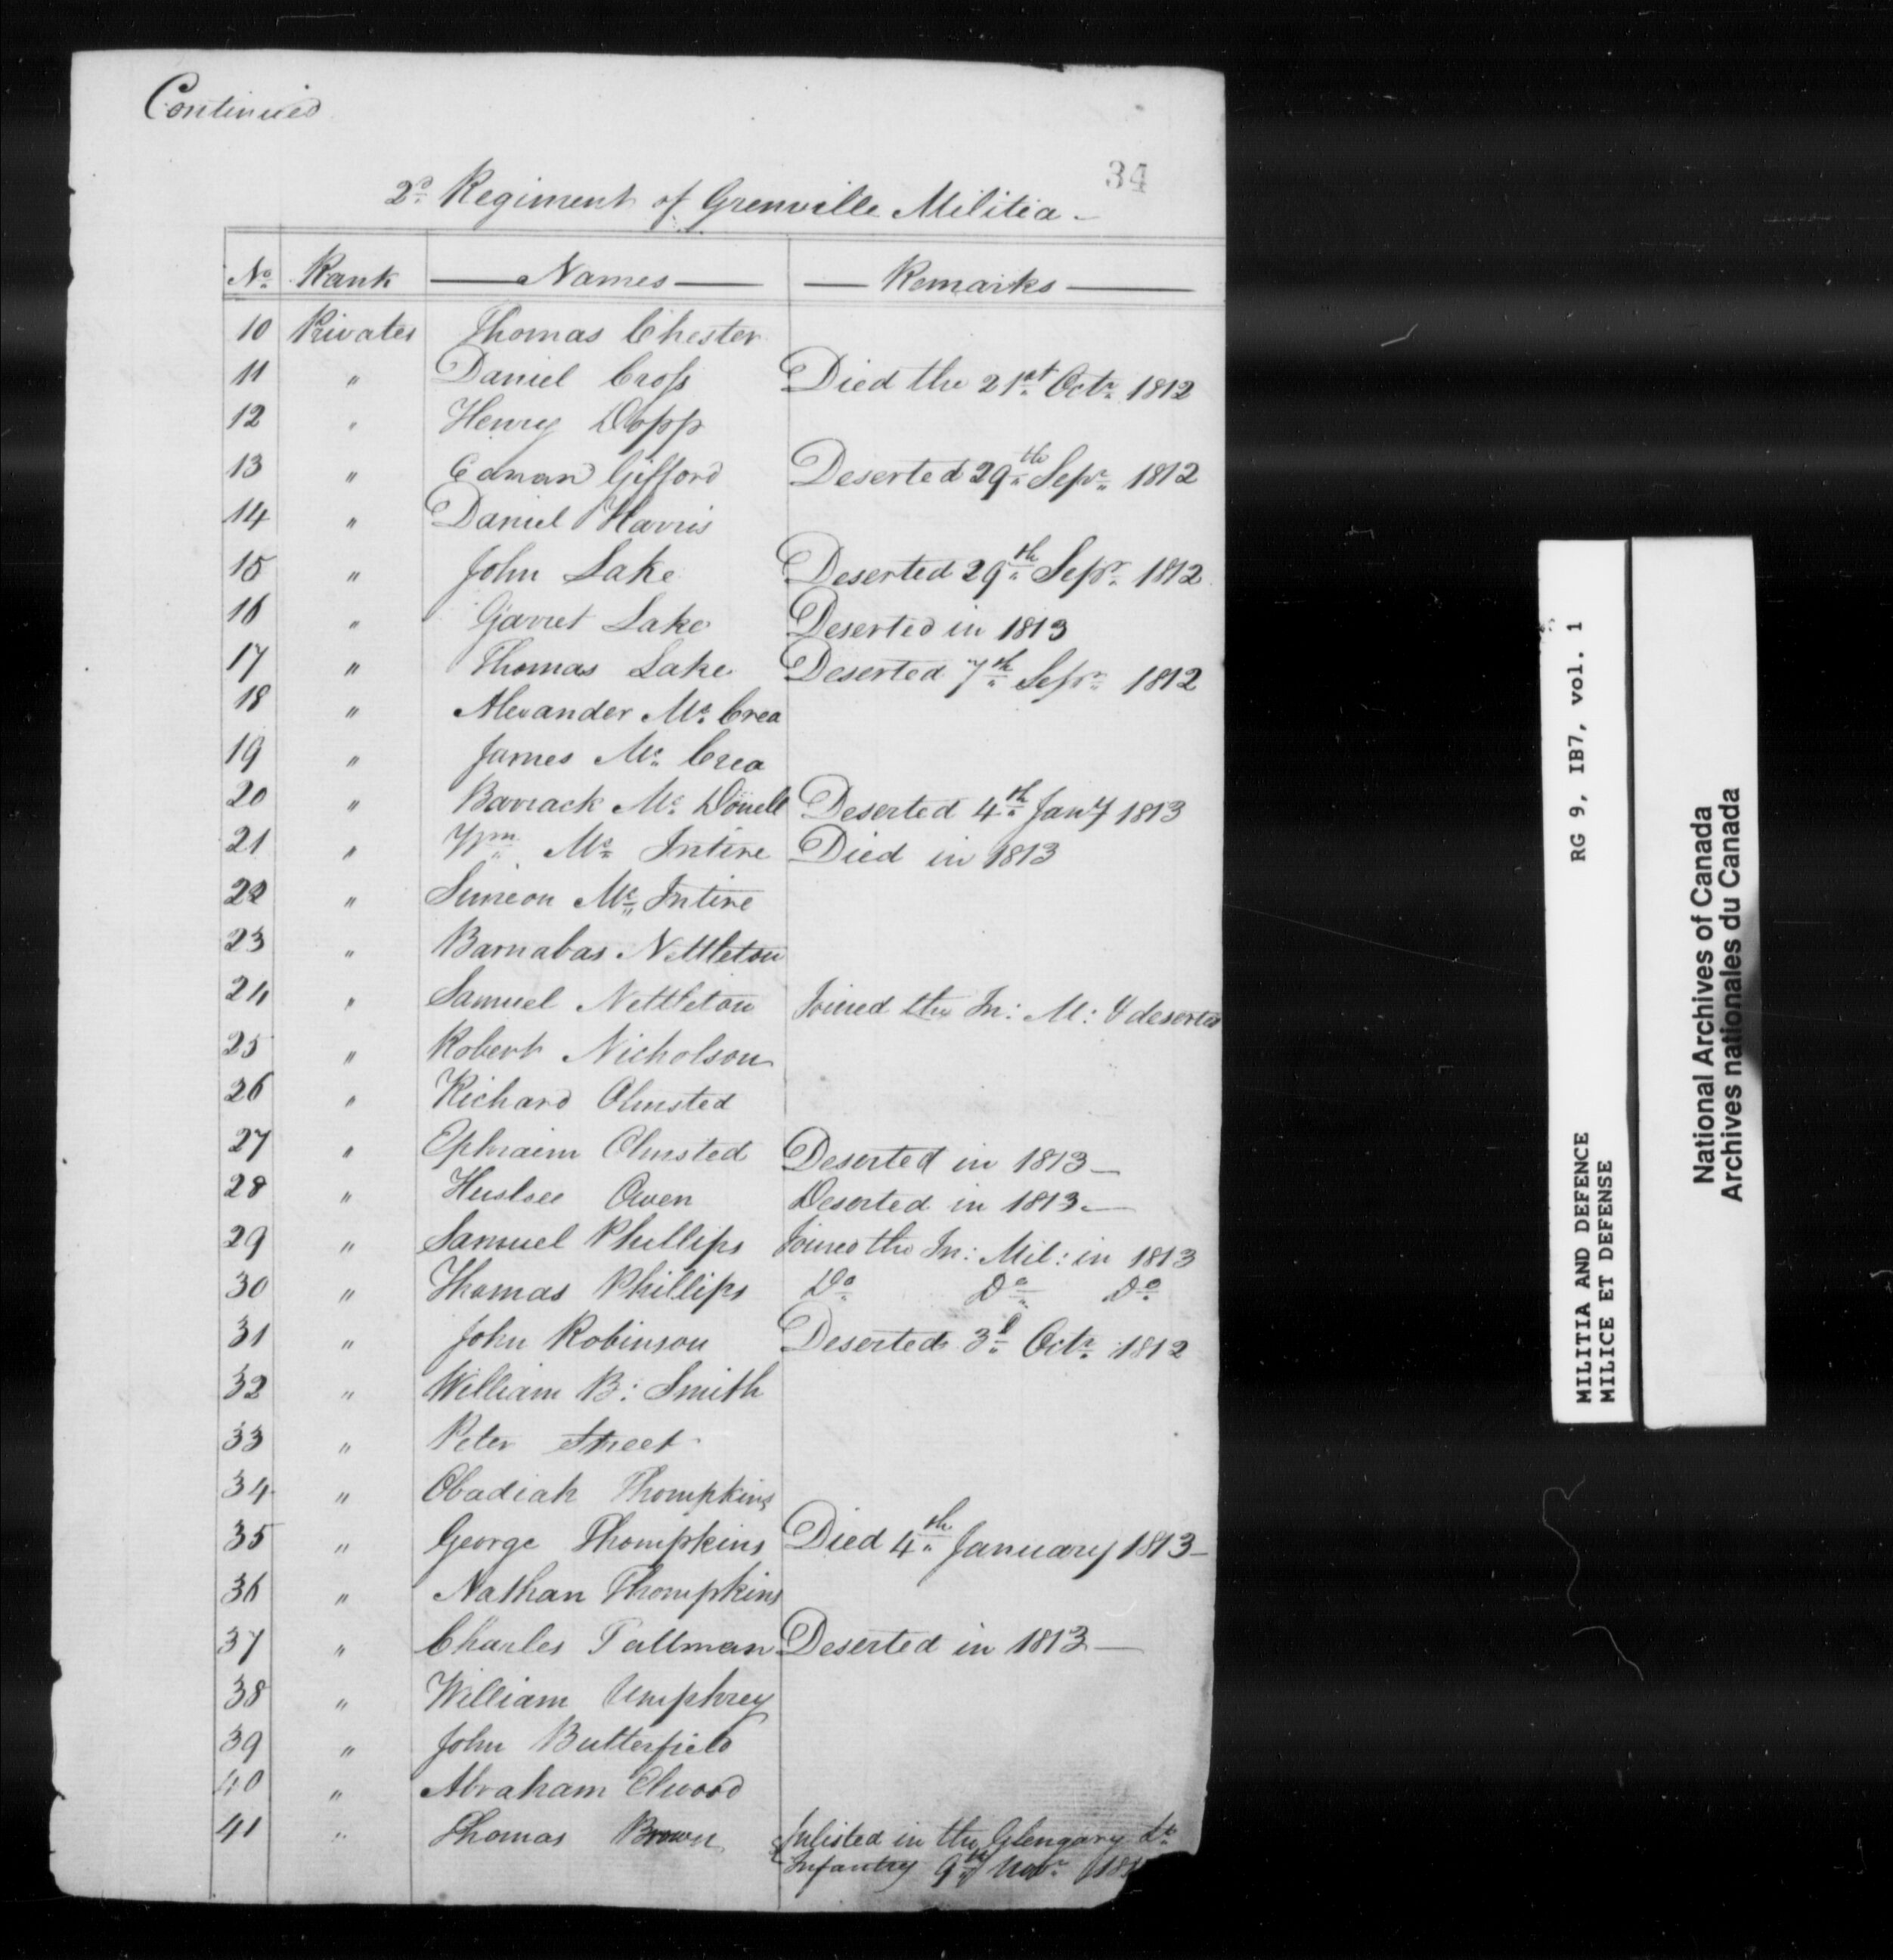 Continued
34
2d Regiment of Grenville Militia -
No Rank Names Remarks
10 Privates Thomas Chester
11 " Daniel Cross Died the 21st Octr 1812
12 " Henry Dopp
13 " Gifford Deserted 29th Sepr 1812
14 " Daniel Harris
15 " John Lake Deserted 29th Sepr 1812
16 " Garret Lake Deserted in 1813
17 " Thomas Lake Deserted 7th Sepr 1812
18 " Alexander Mc Crea
19 " James Mc Crea
20 " Barrack Mc Donell Deserted 4th Jany 1813
21 " Wm Mc Intire Died in 1813
22 " Simeon Mc Intire
23 " Barnabas Nettleton
24 " Samuel Nettleton Joined the In: M: & deserted
25 " Robert Nicholson
26 " Richard Olmsted
27 " Ephraim Olmsted Deserted in 1813 -
28 " Owen Deserted in 1813 -
29 " Samuel Phillips Joined the In: Mil: in 1813
30 " Thomas Phillips Do Do Do
31 " John Robinson Deserted 3d Octr 1812
32 " William B: Smith
33 " Peter Street
34 " Obadiah Thompkins
35 " George Thompkins Died 4th January 1813 -
36 " Nathan Thompkins
37 " Charles Tallman Deserted in 1813 -
38 " William Umphrey
39 " John Butterfield
40 " Abraham Elwood
41 " Thomas Brown Inlisted in the Glengary Lt
Infantry 9th Novr 181
RG 9, IB7, vol. 1
MILITIA AND DEFENCE
MILICE ET DEFENSE
National Archives of Canada
Archives nationales du Canada